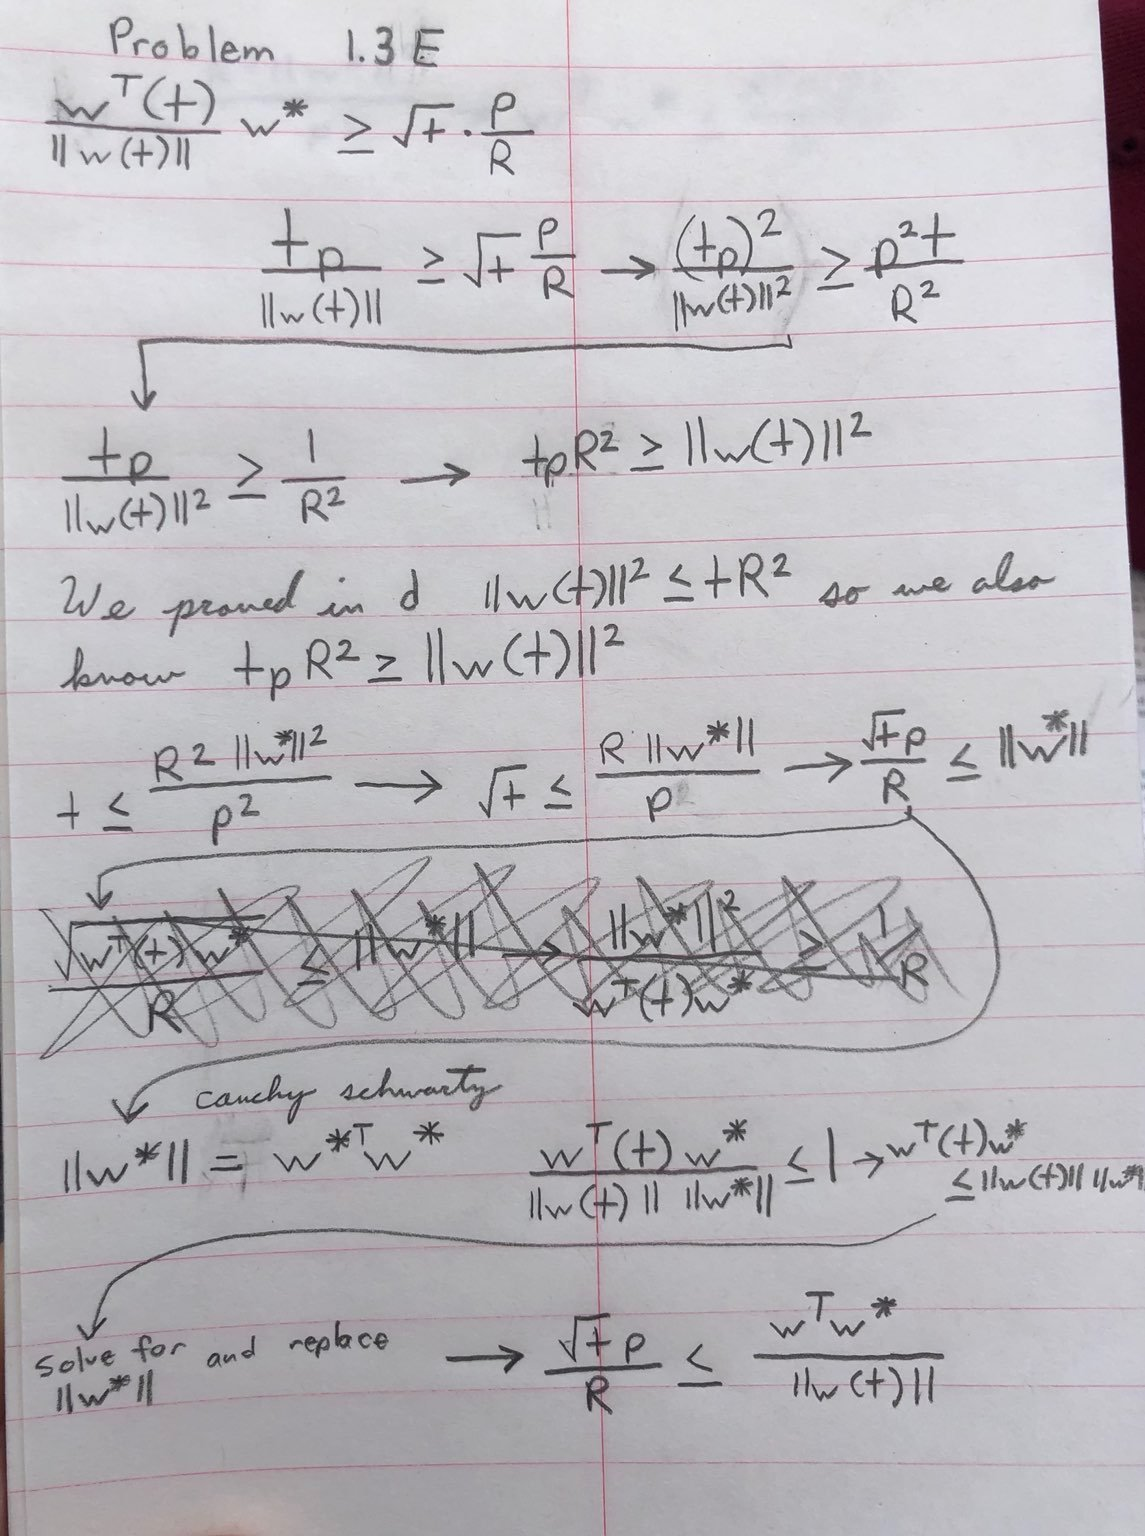 Problem 1.3 E
wᵀ(t)/||w(t)|| w* ≥ √t · p/R
tp/||w(t)|| ≥ √t p/R → (tp)²/||w(t)||² ≥ p²t/R²
tp/||w(t)||² ≥ 1/R² → tpR² ≥ ||w(t)||²
We proved in d ||w(t)||² ≤ tR² so we also
know tpR² ≥ ||w(t)||²
t ≤ R²||w*||²/p² → √t ≤ R||w*||/p → √t p/R ≤ ||w*||
√(wᵀ(t)w*)/R ≤ ||w*|| → ||w*||²/wᵀ(t)w* ≥ 1/R
cauchy schwartz
||w*|| = w*ᵀw* wᵀ(t)w*/||w(t)|| ||w*|| ≤ 1 → wᵀ(t)w*
≤ ||w(t)|| ||w*||
Solve for and replace → √t p/R ≤ wᵀw*/||w(t)||
||w*||